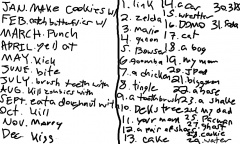 JAN. Make cookies w/
FEB. catch butterflies w/
MARCH. Punch
APRIL. yell at
MAY. Kick
June. bite
JULY. brush teeth with
AUG. kill zombies with
SEPT. eat a doughnut with
Oct. Kill
Nov. Marry
Dec. Kiss
1. link
2. zelda
3. mario
4. 
5. Bowser
6. Goomba
7. a chicken
8. tingle
9. a toothbrush
10. Deku tree
11. your mom
12. a pair of shoes
13. cake
14. a car
15. wrestler
16. DOMO
17. cat
18. a bag
19. my mom
20. JPod
21. bigger
22. a horse
23. a snake
24. my dad
25. Person
26. ghost
27. cake
29. water
30. 
31. Soda